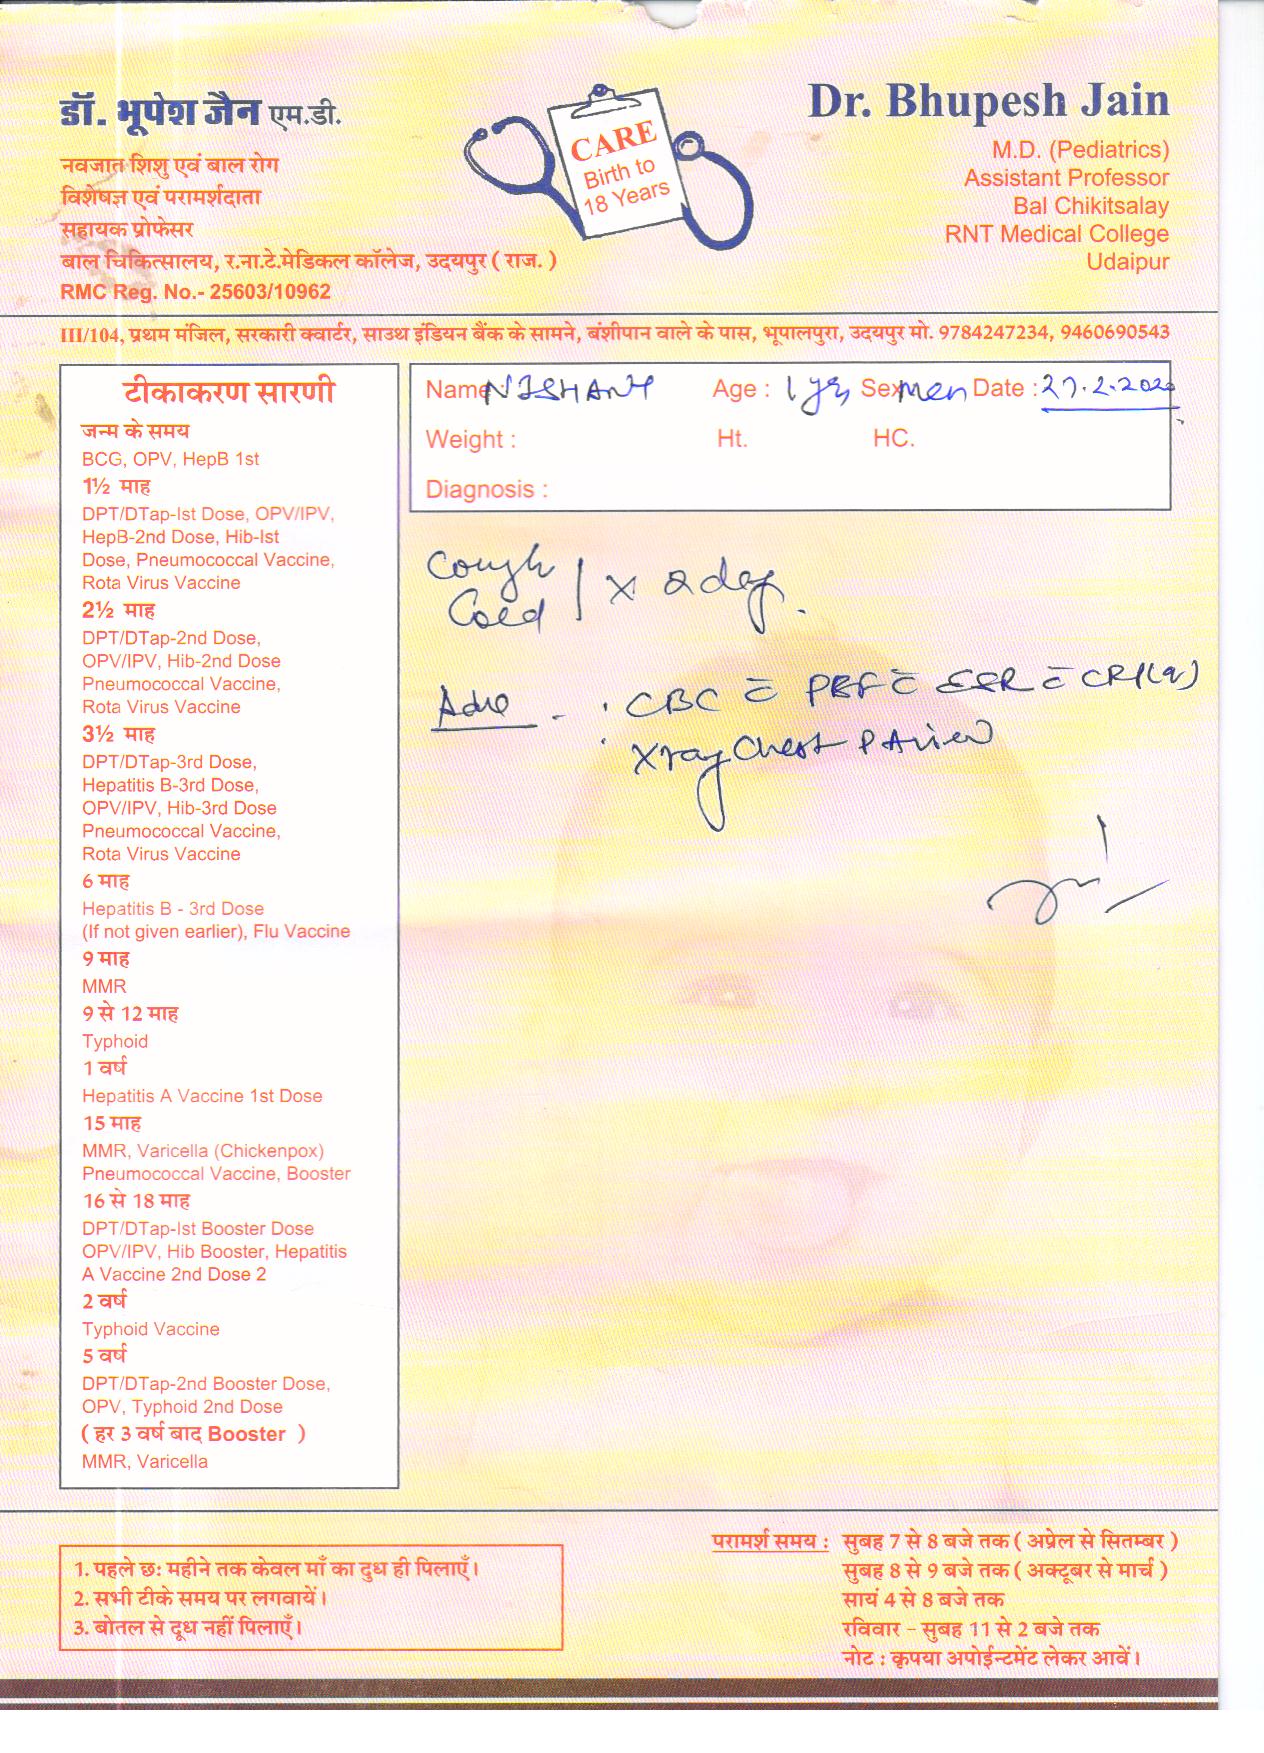 डॉ. भूपेश जैन एम.डी.
नवजात शिशु एवं बाल रोग
विशेषज्ञ एवं परामर्शदाता
सहायक प्रोफेसर
बाल चिकित्सालय, र.ना.टे.मेडिकल कॉलेज, उदयपुर ( राज. )
RMC Reg. No.- 25603/10962
CARE
Birth to
18 Years
Dr. Bhupesh Jain
M.D. (Pediatrics)
Assistant Professor
Bal Chikitsalay
RNT Medical College
Udaipur
III/104, प्रथम मंजिल, सरकारी क्वार्टर, साउथ इंडियन बैंक के सामने, बंशीपान वाले के पास, भूपालपुरा, उदयपुर मो. 9784247234, 9460690543
टीकाकरण सारणी
जन्म के समय
BCG, OPV, HepB 1st
1½ माह
DPT/DTap-Ist Dose, OPV/IPV,
HepB-2nd Dose, Hib-Ist
Dose, Pneumococcal Vaccine,
Rota Virus Vaccine
2½ माह
DPT/DTap-2nd Dose,
OPV/IPV, Hib-2nd Dose
Pneumococcal Vaccine,
Rota Virus Vaccine
3½ माह
DPT/DTap-3rd Dose,
Hepatitis B-3rd Dose,
OPV/IPV, Hib-3rd Dose
Pneumococcal Vaccine,
Rota Virus Vaccine
6 माह
Hepatitis B - 3rd Dose
(If not given earlier), Flu Vaccine
9 माह
MMR
9 से 12 माह
Typhoid
1 वर्ष
Hepatitis A Vaccine 1st Dose
15 माह
MMR, Varicella (Chickenpox)
Pneumococcal Vaccine, Booster
16 से 18 माह
DPT/DTap-Ist Booster Dose
OPV/IPV, Hib Booster, Hepatitis
A Vaccine 2nd Dose 2
2 वर्ष
Typhoid Vaccine
5 वर्ष
DPT/DTap-2nd Booster Dose,
OPV, Typhoid 2nd Dose
( हर 3 वर्ष बाद Booster )
MMR, Varicella
Name : NISHANT Age : 1 yrs Sex Men Date : 27.2.2020
Weight : Ht. HC.
Diagnosis :
Cough
Cold | x 2 day.
CBC c̄ PBF c̄ ESR c̄ CRP(Q)
Xray Chest PA view
1. पहले छः महीने तक केवल माँ का दुध ही पिलाएँ।
2. सभी टीके समय पर लगवायें।
3. बोतल से दूध नहीं पिलाएँ।
परामर्श समय : सुबह 7 से 8 बजे तक ( अप्रेल से सितम्बर )
सुबह 8 से 9 बजे तक ( अक्टूबर से मार्च )
सायं 4 से 8 बजे तक
रविवार - सुबह 11 से 2 बजे तक
नोट : कृपया अपोईन्टमेंट लेकर आवें।